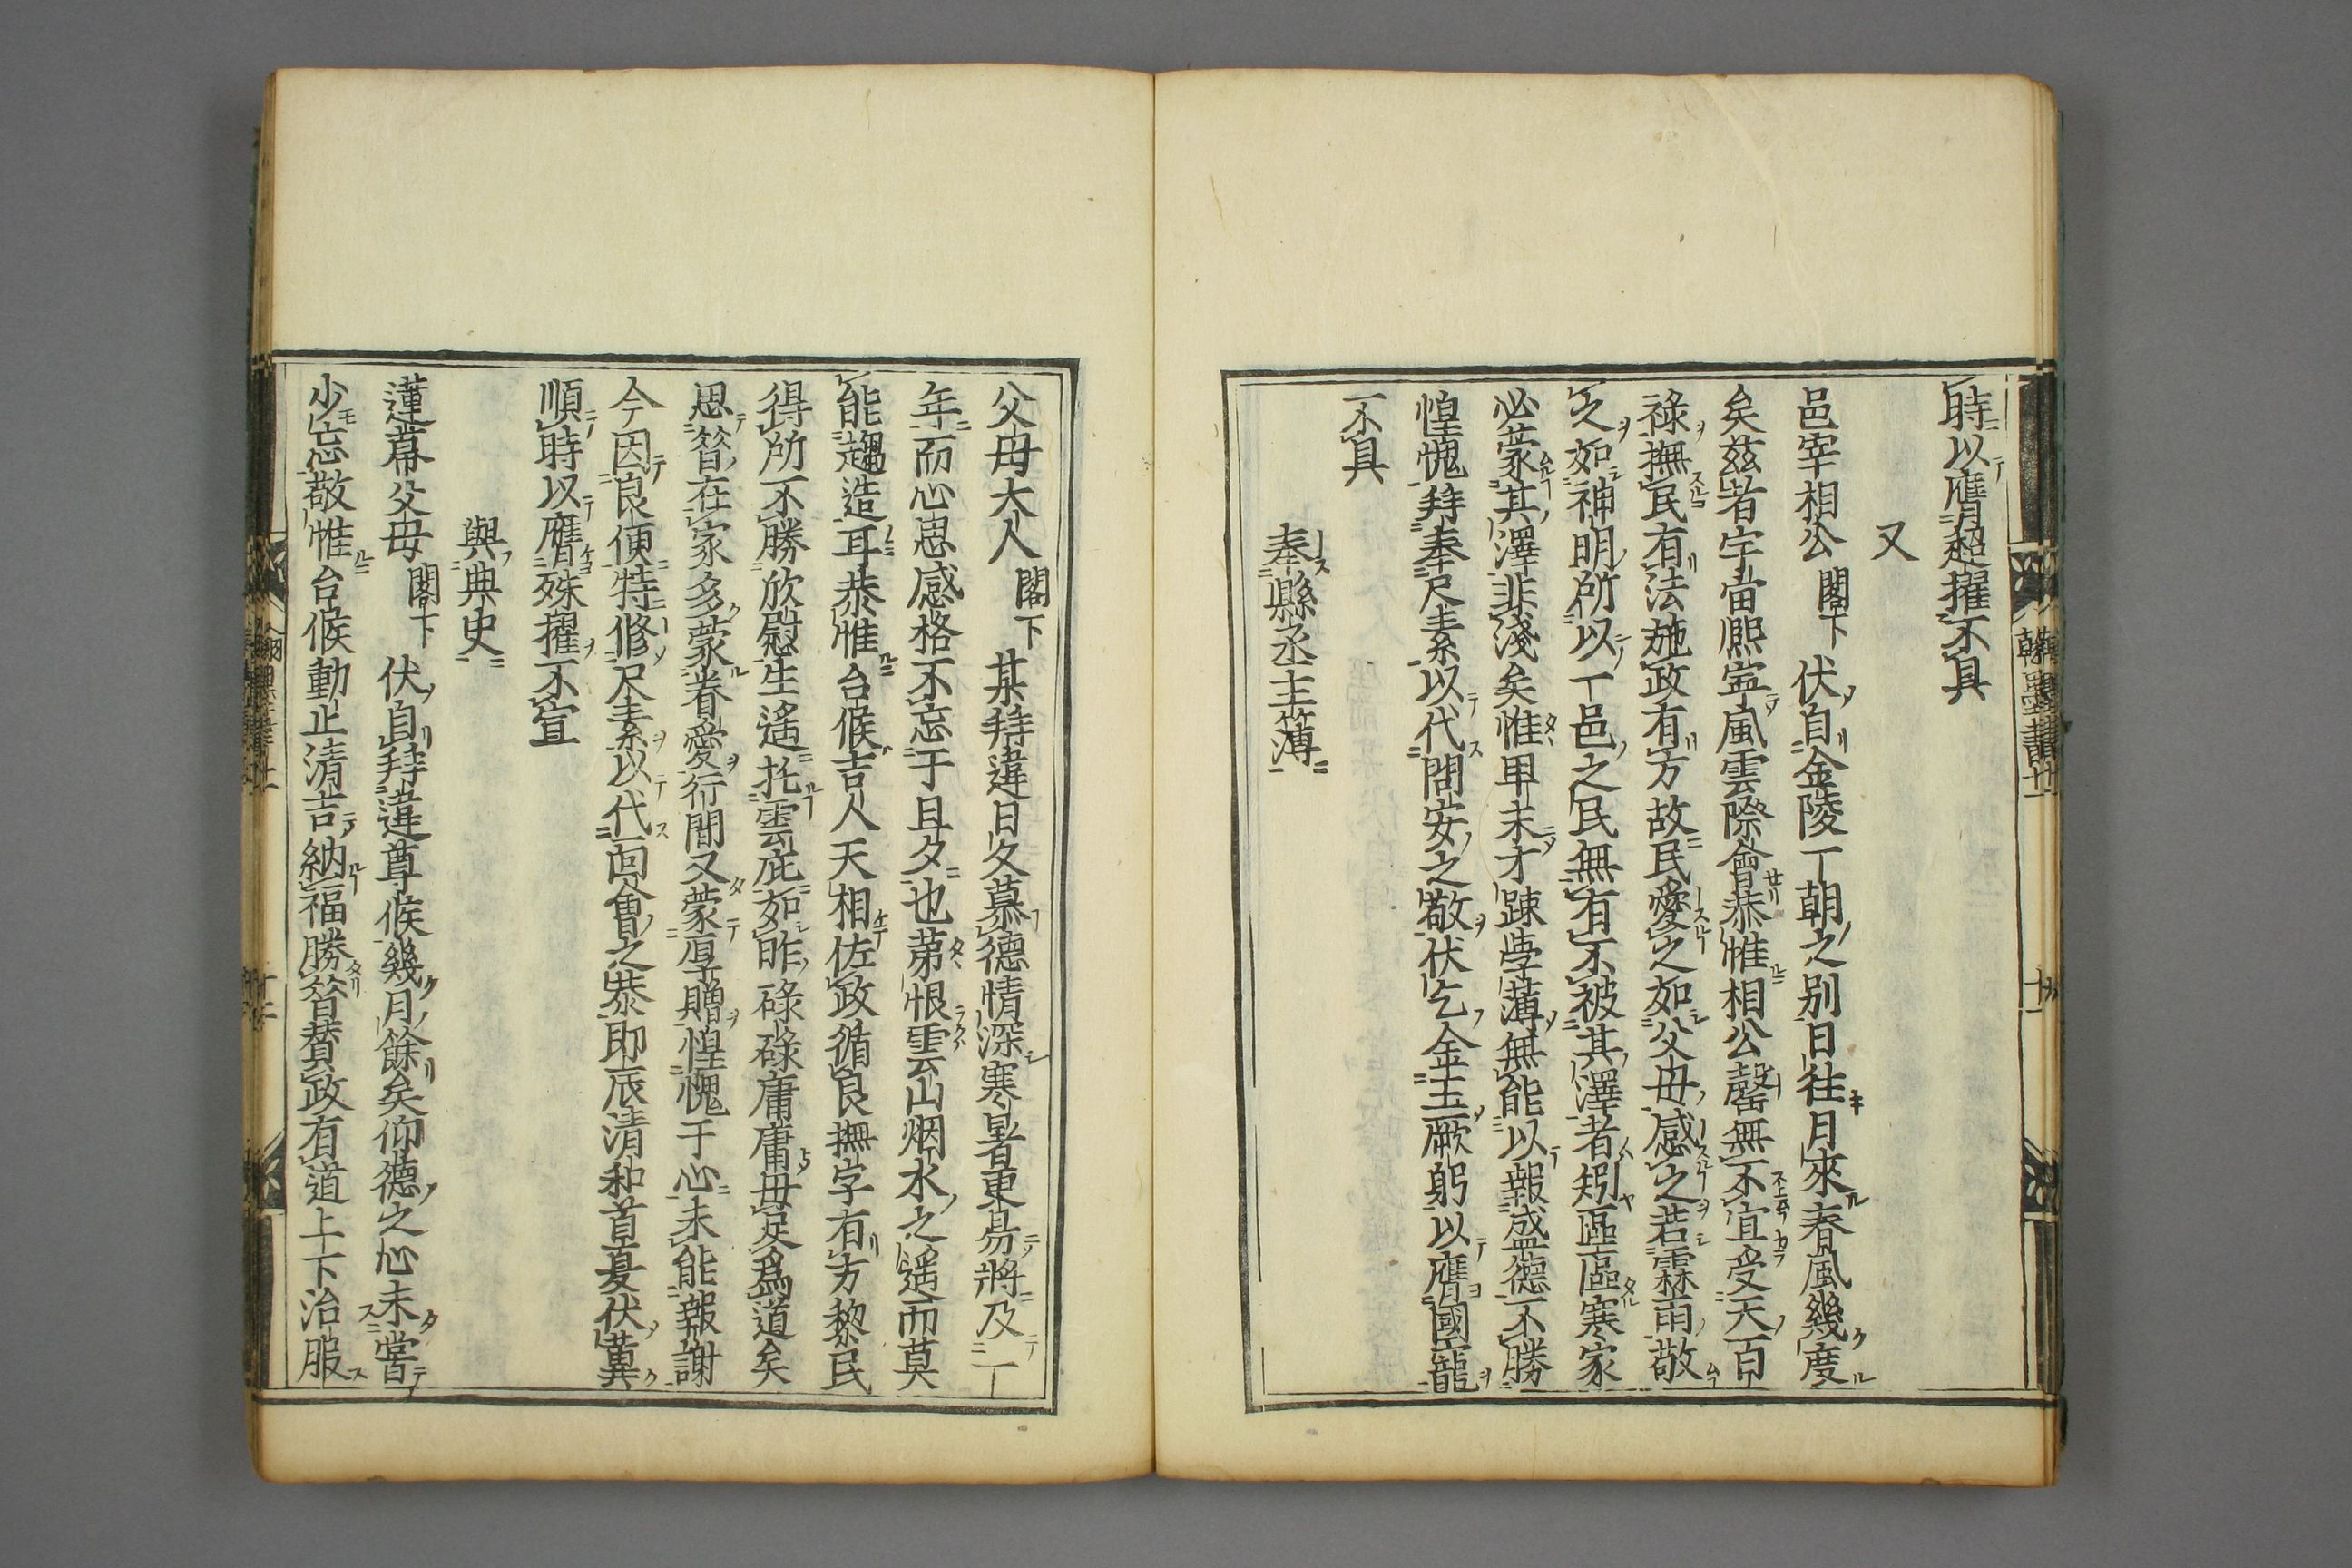 時以膺超擢不具
又
邑宰相公 閣下 伏自金陵一朝之別日往月來春風幾度
矣茲者字當熈寧風雲際會恭惟相公罄無不宜受天百
祿撫民有法施政有方故民愛之如父母感之若霖雨敬
之如神明所以一邑之民無有不被其澤者矧區區寒家
必蒙其澤非淺矣惟甲末才踈學薄無能以報盛德不勝
惶愧拜奉尺素以代問安之敬伏乞金玉厥躬以膺國寵
不具
奉縣丞主簿
父母大人 閣下 某拜違日久慕德情深寒暑東易將及一
年而心思感格不忘于旦夕也第恨雲山烟水之遥而莫
能趨造耳恭惟台候吉人天相佐政循良撫字有方黎民
得所不勝欣慰生遙托雲庇如昨碌碌庸庸毋足爲道矣
思答在家多蒙眷愛行間又蒙厚贈惶愧于心未能報謝
今因良便特修尺素以代面會之恭即辰清和首夏伏冀
順時以膺殊擢不宣
與典史
蓮幕父母 閣下 伏自拜違尊候幾月餘矣仰德之心未嘗
少忘敬惟台候動止清吉納福勝答賛政有道上下治服